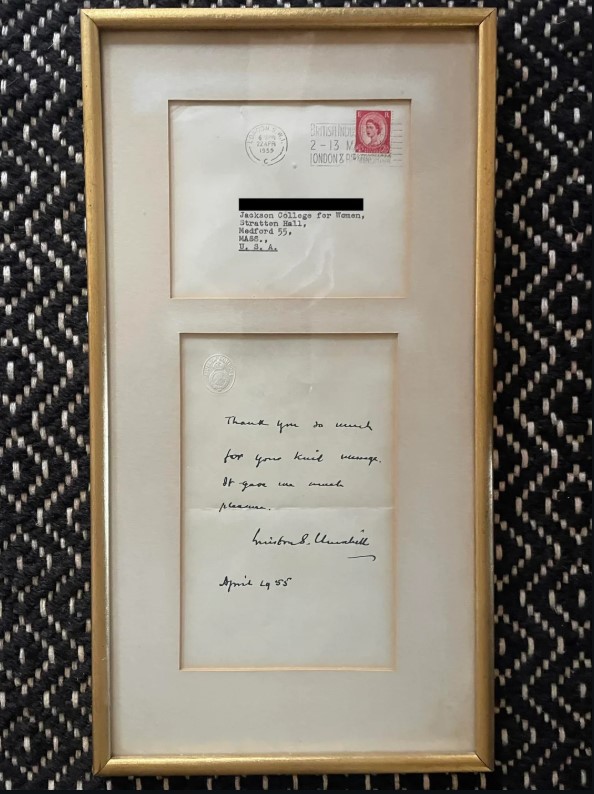 LONDON S.W.1.
22 APR
1955
C
BRITISH INDU
2 - 13 M
LONDON &
Jackson College for Women,
Stratton Hall,
Medford 55,
MASS.,
U. S. A.
Thank you so much
for your kind message.
It gave me much
pleasure.
Winston S. Churchill
April 1955